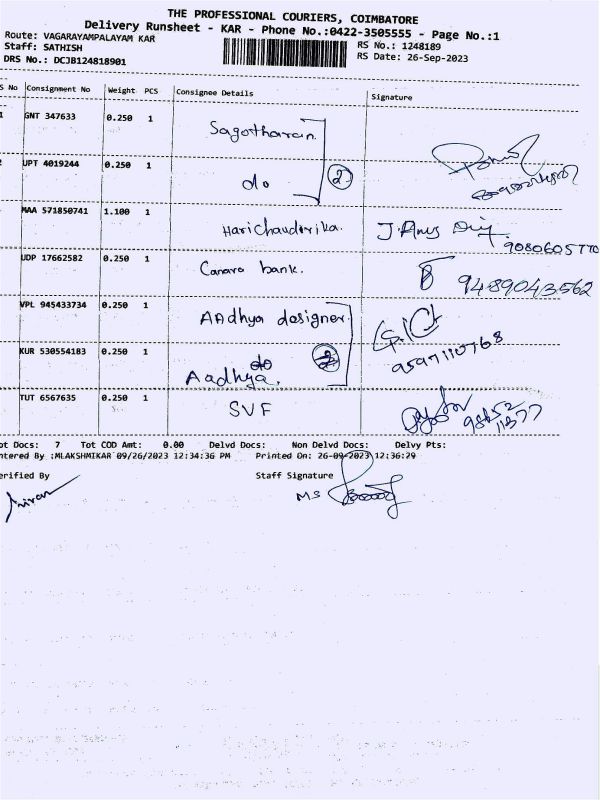 THE PROFESSIONAL COURIERS, COIMBATORE
Delivery Runsheet - KAR - Phone No.:0422-3505555 - Page No.:1
Route: VAGARAYAMPALAYAM KAR
RS No.: 1248189
Staff: SATHISH
RS Date: 26-Sep-2023
DRS No.: DCJB124818901
S No Consignment No Weight PCS Consignee Details Signature
1 GNT 347633 0.250 1
UPT 4019244 0.250 1 do 2
MAA 571850741 1.100 1 Harichandrika. 9080605770
UDP 17662582 0.250 1 Canara bank. 9489043562
VPL 945433734 0.250 1 AAdhya designer.
KUR 530554183 0.250 1 do 2 9597110768
Aadhya.
TUT 6567635 0.250 1 SVF 98652
11377
ot Docs: 7 Tot COD Amt: 0.00 Delvd Docs: Non Delvd Docs: Delvy Pts:
ntered By :MLAKSHMIKAR 09/26/2023 12:34:36 PM Printed On: 26-09-2023 12:36:29
erified By Staff Signature
MS